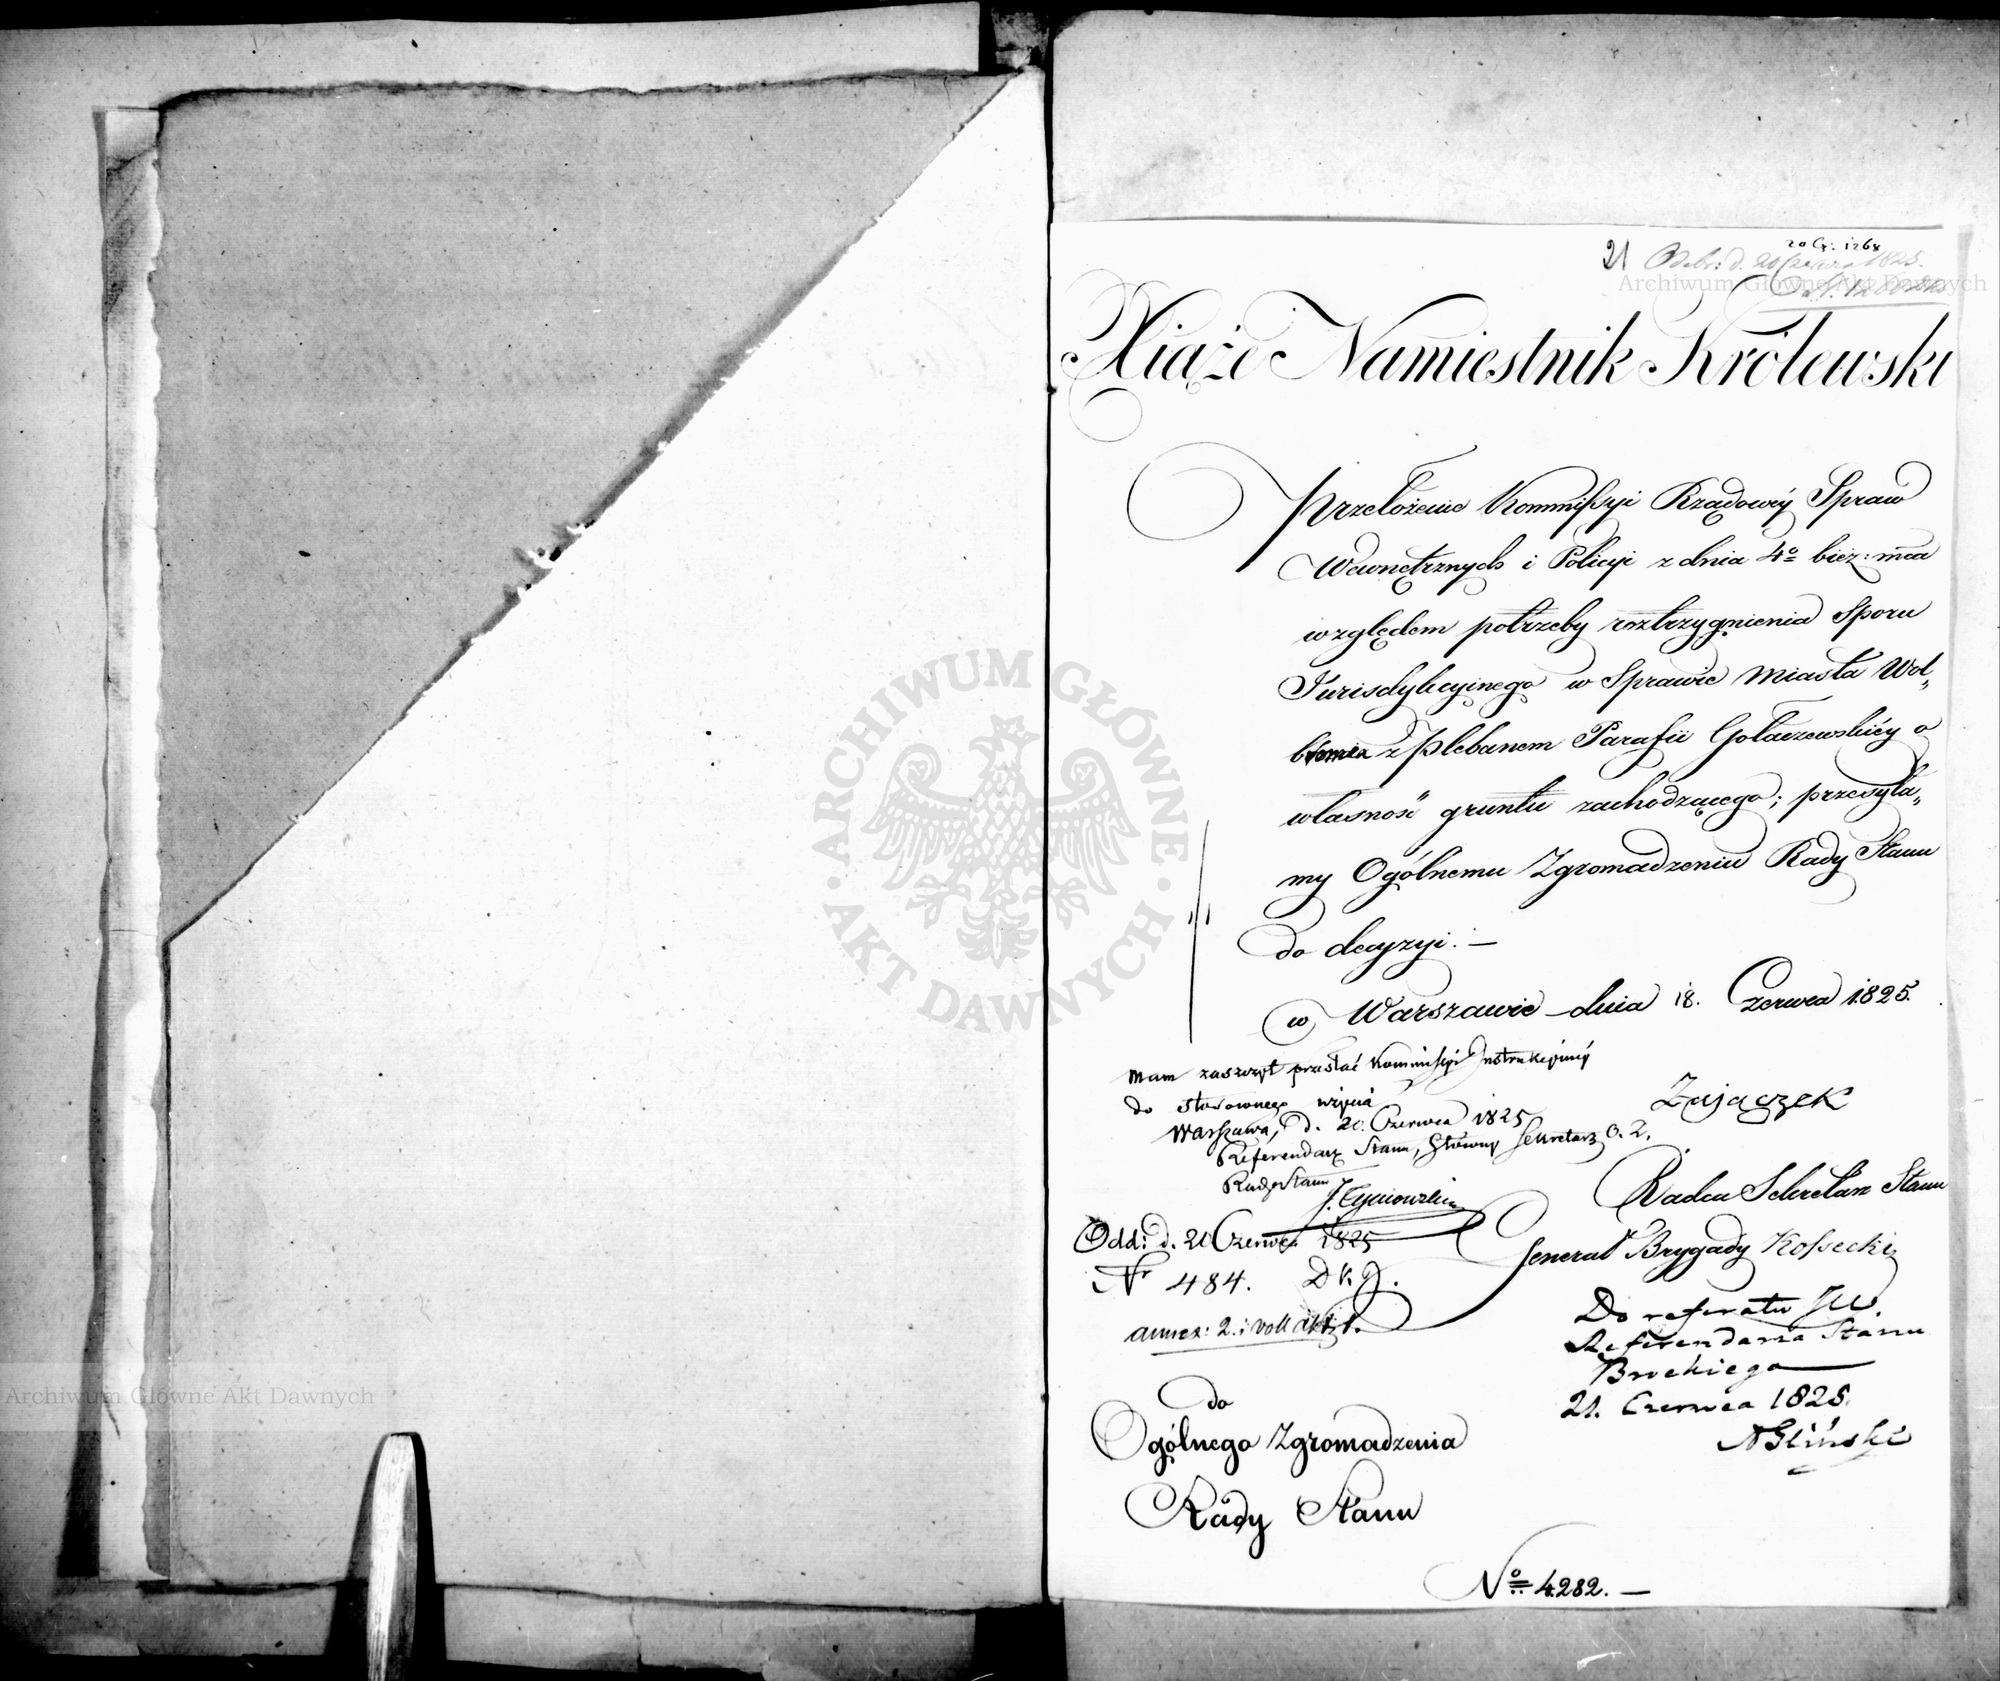 20 Cz: 1268
21 Odebr: d. 20 Czerwca 1825.
Archiwum Główne Akt Dawnych
Xiąże Namiestnik Królewski
Przełożenie Kommissyi Rządowéy Spraw
Wewnętrznych i Policyi z dnia 4º bież: mca
względem potrzeby roztrzygnienia Sporu
Jurisdykcyinego w Sprawie Miasta Wol„
bromia z Plebanem Parafii Gołaczewskiéy o
własność gruntu zachodzącego; przesyła„
my Ogólnemu Zgromadzeniu Rady Stanu
do decyzyi. —
w Warszawie dnia 18. Czerwca 1825.
Mam zaszczyt przesłać Kommissyi Instrukcyinéy
do stosownego użycia
Warszawa, d. 20. Czerwca 1825
Referendarz Stanu, Główny Sekretarz O. Z.
Rady Stanu
Zajączek
Radca Sekretarz Stanu
Generał Brygady Kossecki
Odd: d. 21 Czerwca 1825
Nr 484. D. K. J.
annex: 2. i voll akt 1.
Do referatu JW.
Referendarza Stanu
Brockiego
21. Czerwca 1825.
AGliński
do
Ogólnego Zgromadzenia
Rady Stanu
Nº 4282. —
ARCHIWUM GŁÓWNE
AKT DAWNYCH
Archiwum Główne Akt Dawnych